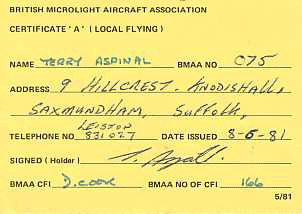 BRITISH MICROLIGHT AIRCRAFT ASSOCIATION
CERTIFICATE 'A' (LOCAL FLYING)
NAME TERRY ASPINAL BMAA NO C75
ADDRESS 9 HILLCREST. KNODISHALL,
SAXMUNDHAM, SUFFOLK,
LEISTON
TELEPHONE NO 831027 DATE ISSUED 8-6-81
SIGNED (Holder)
BMAA CFI D. COOK BMAA NO OF CFI 166
5/81